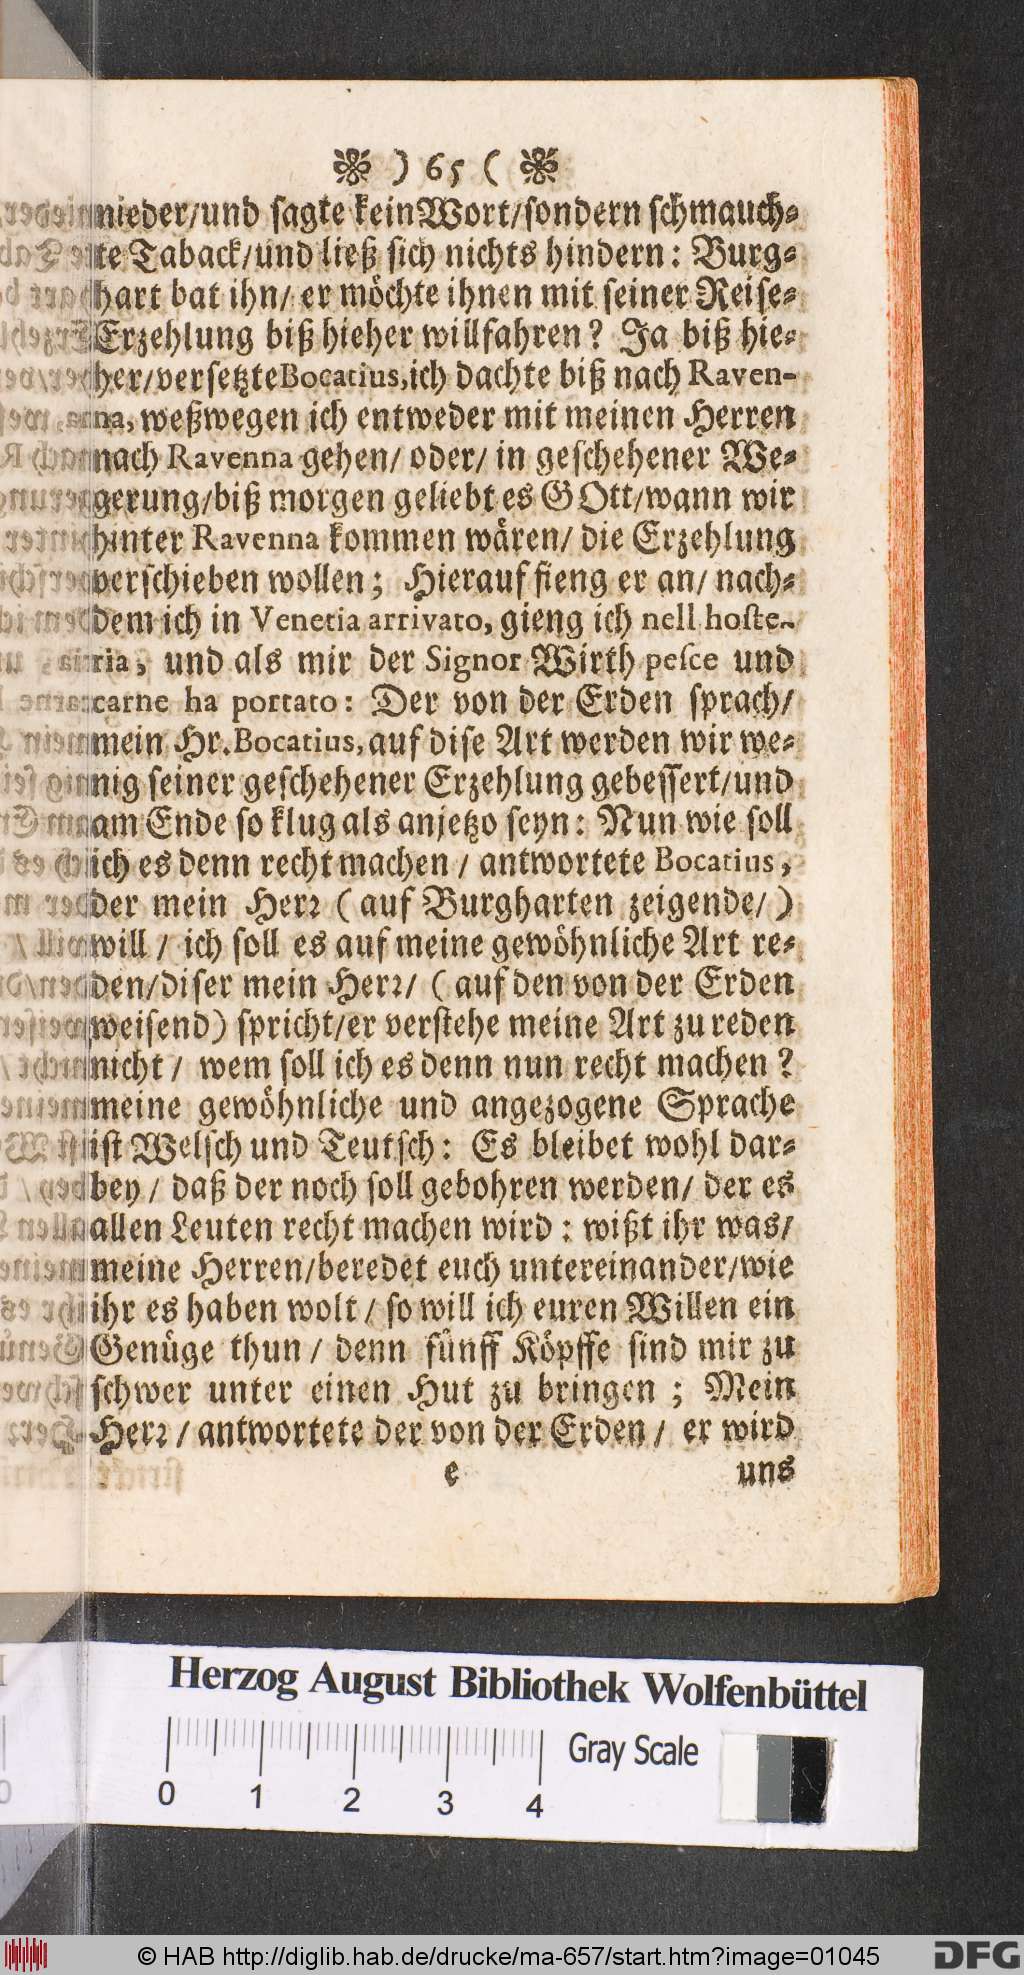 ) 65 (
nieder/und sagte kein Wort/sondern schmauch-
te Taback/und ließ sich nichts hindern: Burg-
hart bat ihn/ er möchte ihnen mit seiner Reise-
Erzehlung biß hieher willfahren? Ja biß hie-
her/versetzte Bocatius, ich dachte biß nach Raven-
na, weßwegen ich entweder mit meinen Herren
nach Ravenna gehen/ oder/ in geschehener We-
gerung/biß morgen geliebt es GOtt/wann wir
hinter Ravenna kommen wären/ die Erzehlung
verschieben wollen; Hierauf fieng er an/ nach-
dem ich in Venetia arrivato, gieng ich nell hoste-
ria, und als mir der Signor Wirth pesce und
carne ha portato: Der von der Erden sprach/
mein Hr. Bocatius, auf dise Art werden wir we-
nig seiner geschehener Erzehlung gebessert/und
am Ende so klug als anjetzo seyn: Nun wie soll
ich es denn recht machen / antwortete Bocatius,
der mein Herr (auf Burgharten zeigende/)
will / ich soll es auf meine gewöhnliche Art re-
den/diser mein Herr/ (auf den von der Erden
weisend) spricht/er verstehe meine Art zu reden
nicht / wem soll ich es denn nun recht machen?
meine gewöhnliche und angezogene Sprache
ist Welsch und Teutsch: Es bleibet wohl dar-
bey / daß der noch soll gebohren werden/ der es
allen Leuten recht machen wird: wißt ihr was/
meine Herren/beredet euch untereinander/wie
ihr es haben wolt / so will ich euren Willen ein
Genüge thun / denn fünff Köpffe sind mir zu
schwer unter einen Hut zu bringen; Mein
Herr / antwortete der von der Erden / er wird
e uns
Herzog August Bibliothek Wolfenbüttel
Gray Scale
0 1 2 3 4
© HAB http://diglib.hab.de/drucke/ma-657/start.htm?image=01045
DFG